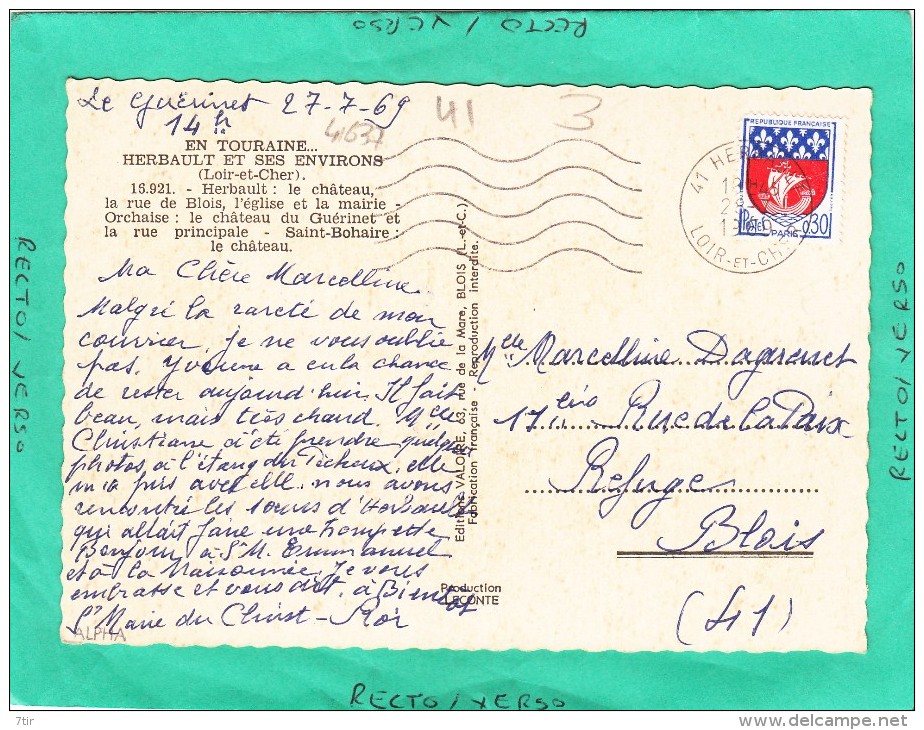 RECTO / VERSO
Le Guérinet 27-7-69
14 h
41
3
4637
EN TOURAINE...
HERBAULT ET SES ENVIRONS
(Loir-et-Cher).
16.921. - Herbault : le château,
la rue de Blois, l'église et la mairie -
Orchaise : le château du Guérinet et
la rue principale - Saint-Bohaire :
le château.
REPUBLIQUE FRANÇAISE
POSTES PARIS 0,30
41 HERBAULT
LOIR-ET-CHER
Ma Chère Marcelline
Malgré la rareté de mon
courrier, je ne vous oublie
pas. Yvonne a eu la chance
de rester aujourd'hui. Il fait
beau, mais très chaud. Melle
Christiane a été prendre quelques
photos à l'étang du elle
m'a pris avec elle. nous avons
rencontré les sœurs d'Herbault
qui allait faire une trempette
Bonjour à Sr M. Emmanuel
et à la Maisonnée. Je vous
embrasse et vous dit. à Bientôt
Sr Marie du Christ-Roi
Editions VALOIRE, 63, rue de la Mare, BLOIS (L.-et-C.)
Fabrication française - Reproduction interdite.
Production
LECONTE
Melle Marcelline
17 Rue de la Paix
Refuge
Blois
(41)
ALPHA
RECTO / VERSO
RECTO / VERSO
RECTO / VERSO
7tir
www.delcampe.net